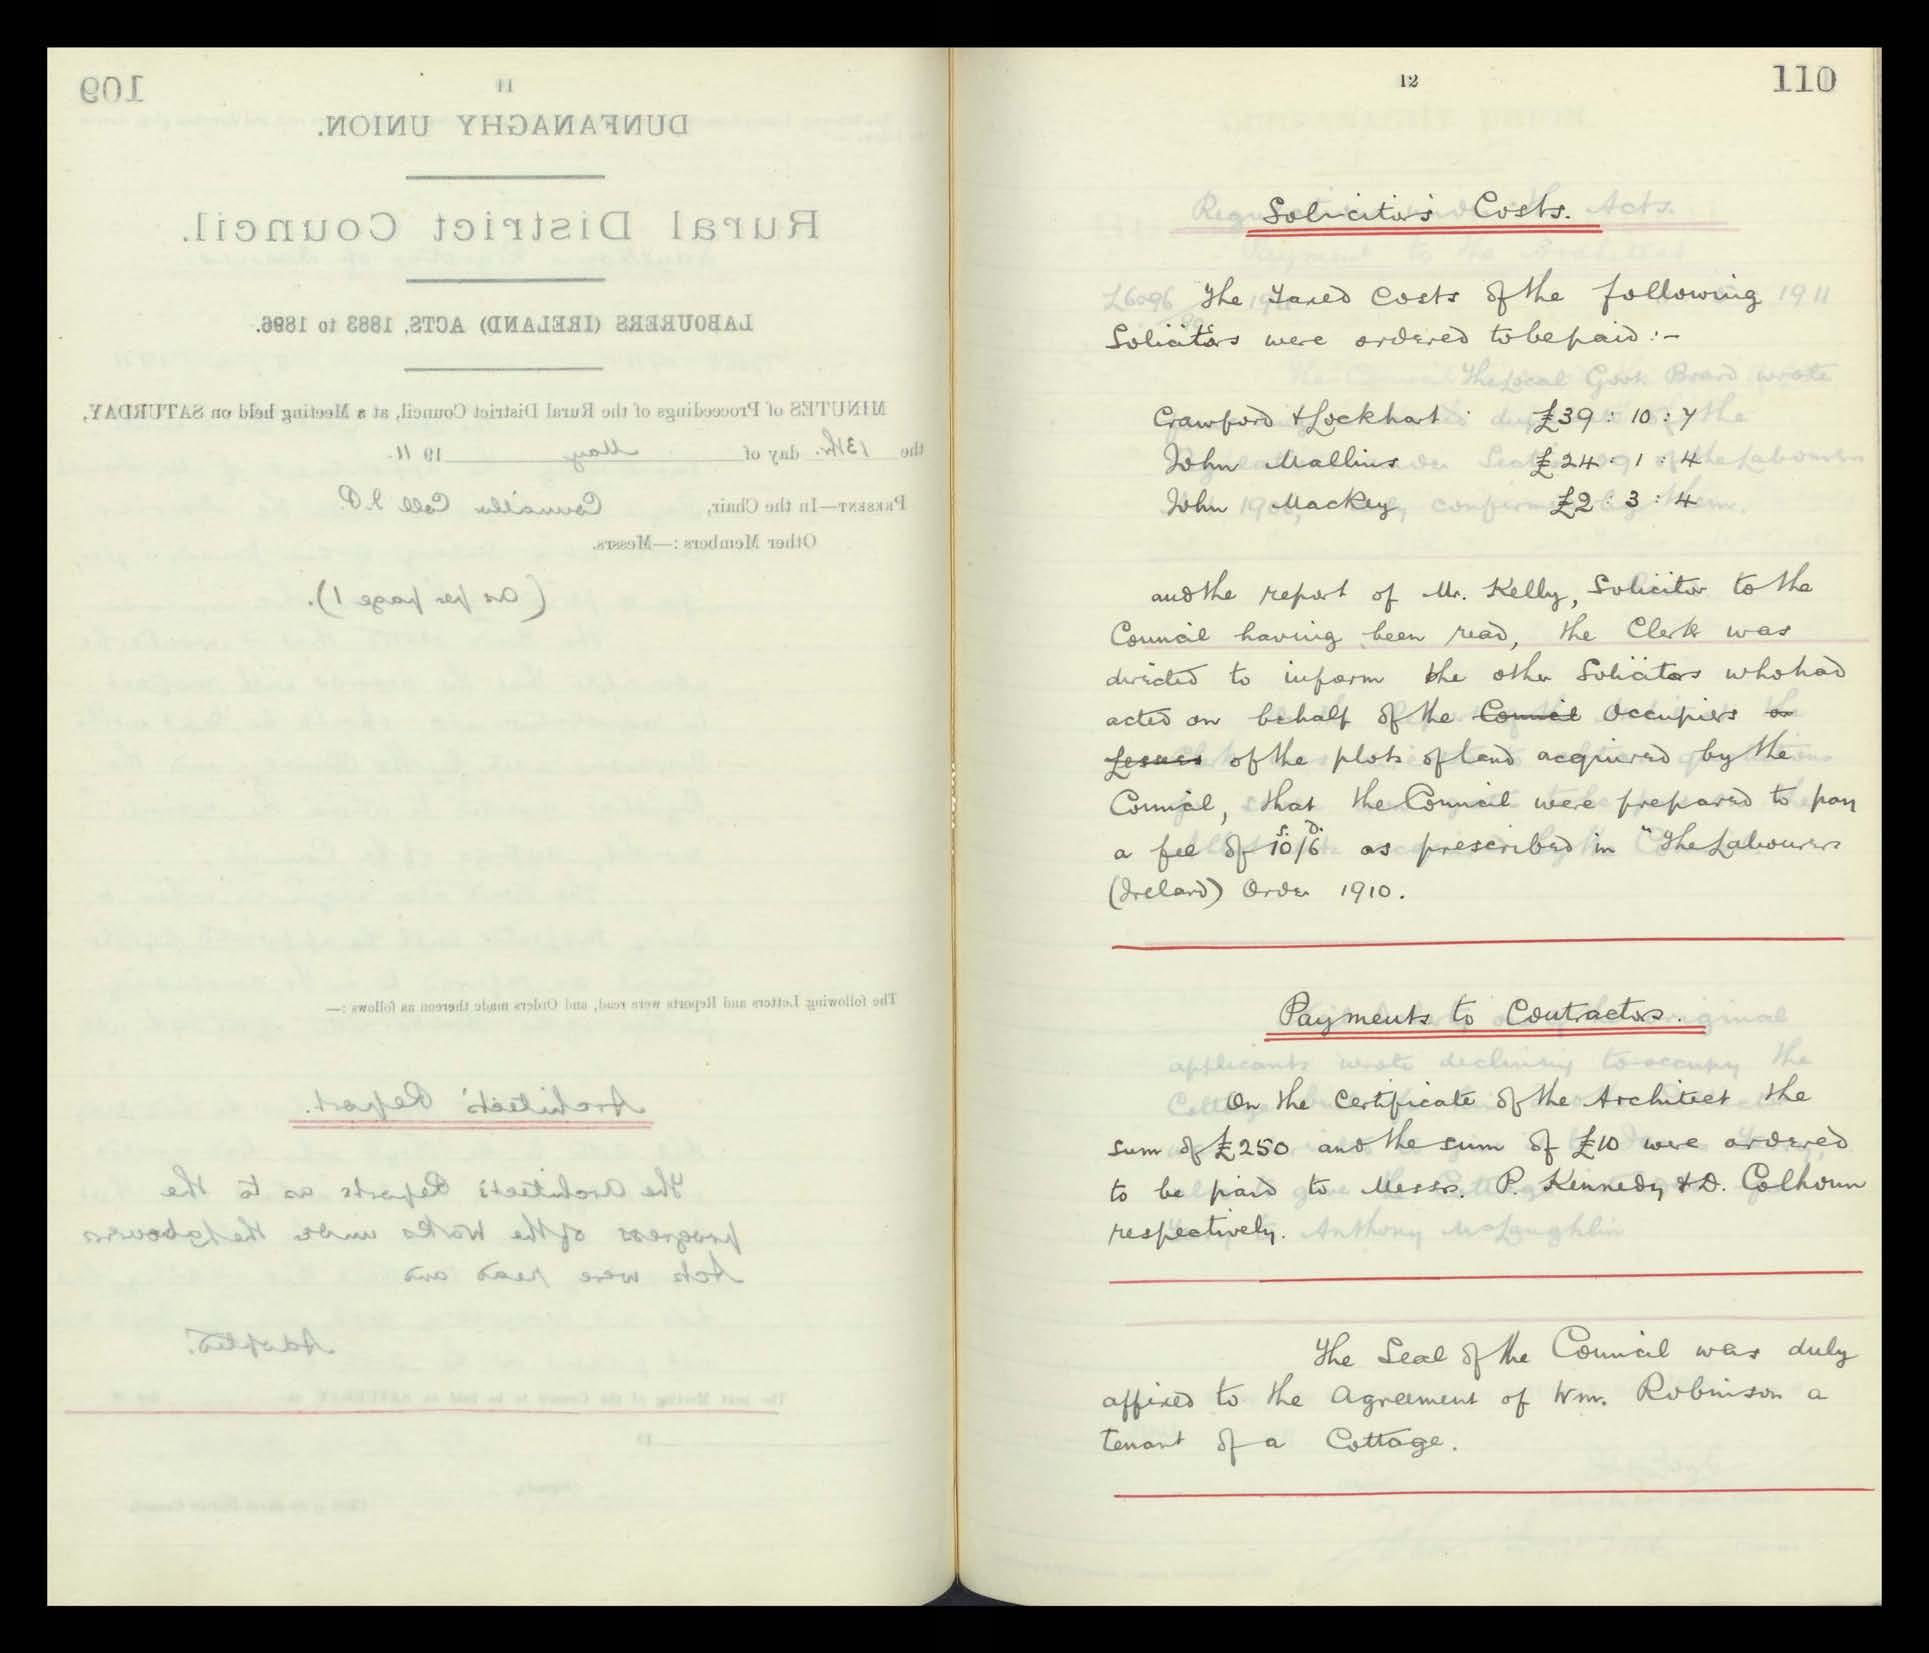 109
11
DUNFANAGHY UNION.
Rural District Council.
LABOURERS (IRELAND) ACTS, 1883 to 1896.
MINUTES of Proceedings of the Rural District Council, at a Meeting held on SATURDAY,
the 13th. day of May 19 11.
PRESENT—In the Chair, Councillor Coll J.P.
Other Members :—Messrs.
(As per page 1).
The following Letters and Reports were read, and Orders made thereon as follows :—
Architects' Report.
The Architect's Reports as to the
progress of the Works under the Labourers
Acts were read and
Adopted.
12
110
Solicitor's Costs.
The Taxed Costs of the following
Solicitors were ordered to be paid :-
Crawford & Lockhart £39 : 10 : 7
John Mallins £24 : 1 : 4
John Mackey £2 : 3 : 4
and the report of Mr. Kelly, Solicitor to the
Council having been read, the Clerk was
directed to inform the other Solicitors who had
acted on behalf of the Council Occupiers or
Lessees of the plots of land acquired by the
Council, that the Council were prepared to pay
a fee of 10/6 S. D. as prescribed in "The Labourers
(Ireland) Order 1910.
Payments to Contractors.
On the Certificate of the Architect the
sum of £250 and the sum of £10 were ordered
to be paid to Messrs. P. Kennedy & D. Colhoun
respectively.
The Seal of the Council was duly
affixed to the Agreement of Wm. Robinson a
tenant of a Cottage.